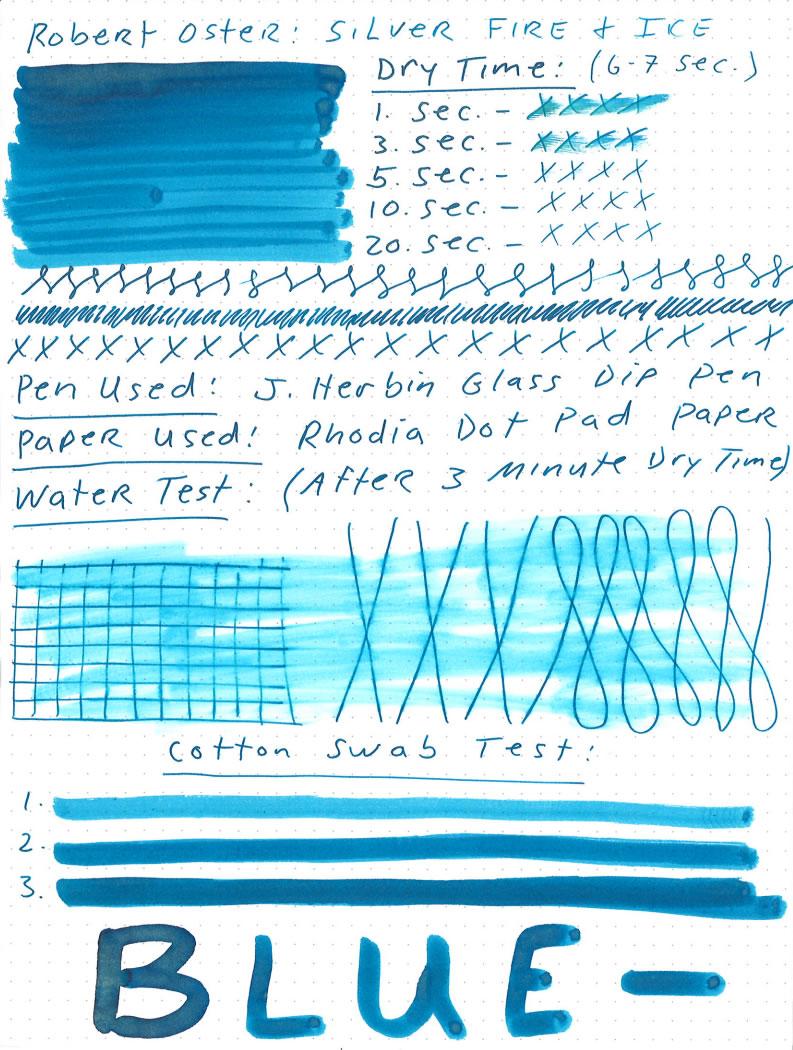 Robert Oster: Silver Fire & Ice
Dry Time: (6-7 sec.)
1. sec. - X X X X
3. sec. - X X X X
5. sec. - X X X X
10. sec. - X X X X
20. sec. - X X X X
X X X X X X X X X X X X X X X X X X X X X X X
Pen Used: J. Herbin Glass Dip Pen
Paper Used: Rhodia Dot Pad Paper
Water Test: (After 3 Minute Dry Time)
Cotton Swab Test:
1.
2.
3.
BLUE-